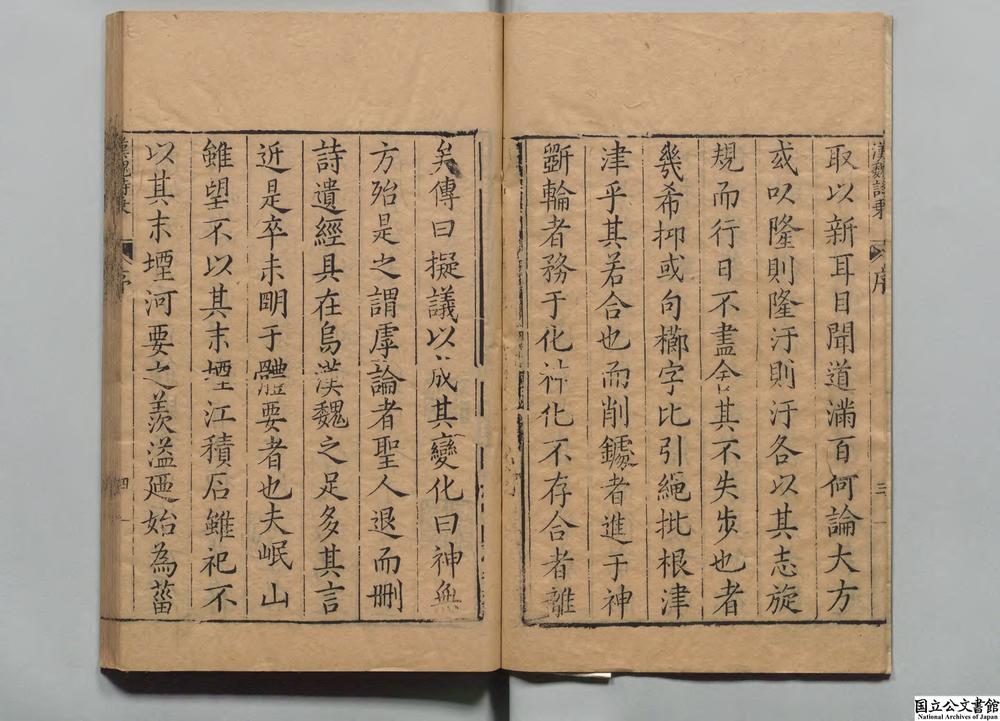 漢魏詩乗
序
三
取以新耳目聞道滿百何論大方
或以隆則隆汙則汙各以其志旋
規而行日不盡合其不失步也者
幾希抑或句櫛字比引繩批根津
津乎其若合也而削鐻者進于神
斲輪者務于化神化不存合者離
矣傳曰擬議以成其變化曰神無
方殆是之謂虖論者聖人退而刪
詩遺經具在烏漢魏之足多其言
近是卒未明于體要者也夫岷山
雖望不以其末堙江積石雖祀不
以其末堙河要之羨溢廼始為菑
漢魏詩乗
序
四
国立公文書館
National Archives of Japan